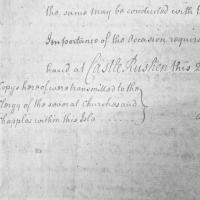 the same may be conducted with
Importance of the Occasion requir
hand at Castle Rushen this 2
Copys hereof were transmitted to the
Clergy of the several Churches and
Chapples within this Isle